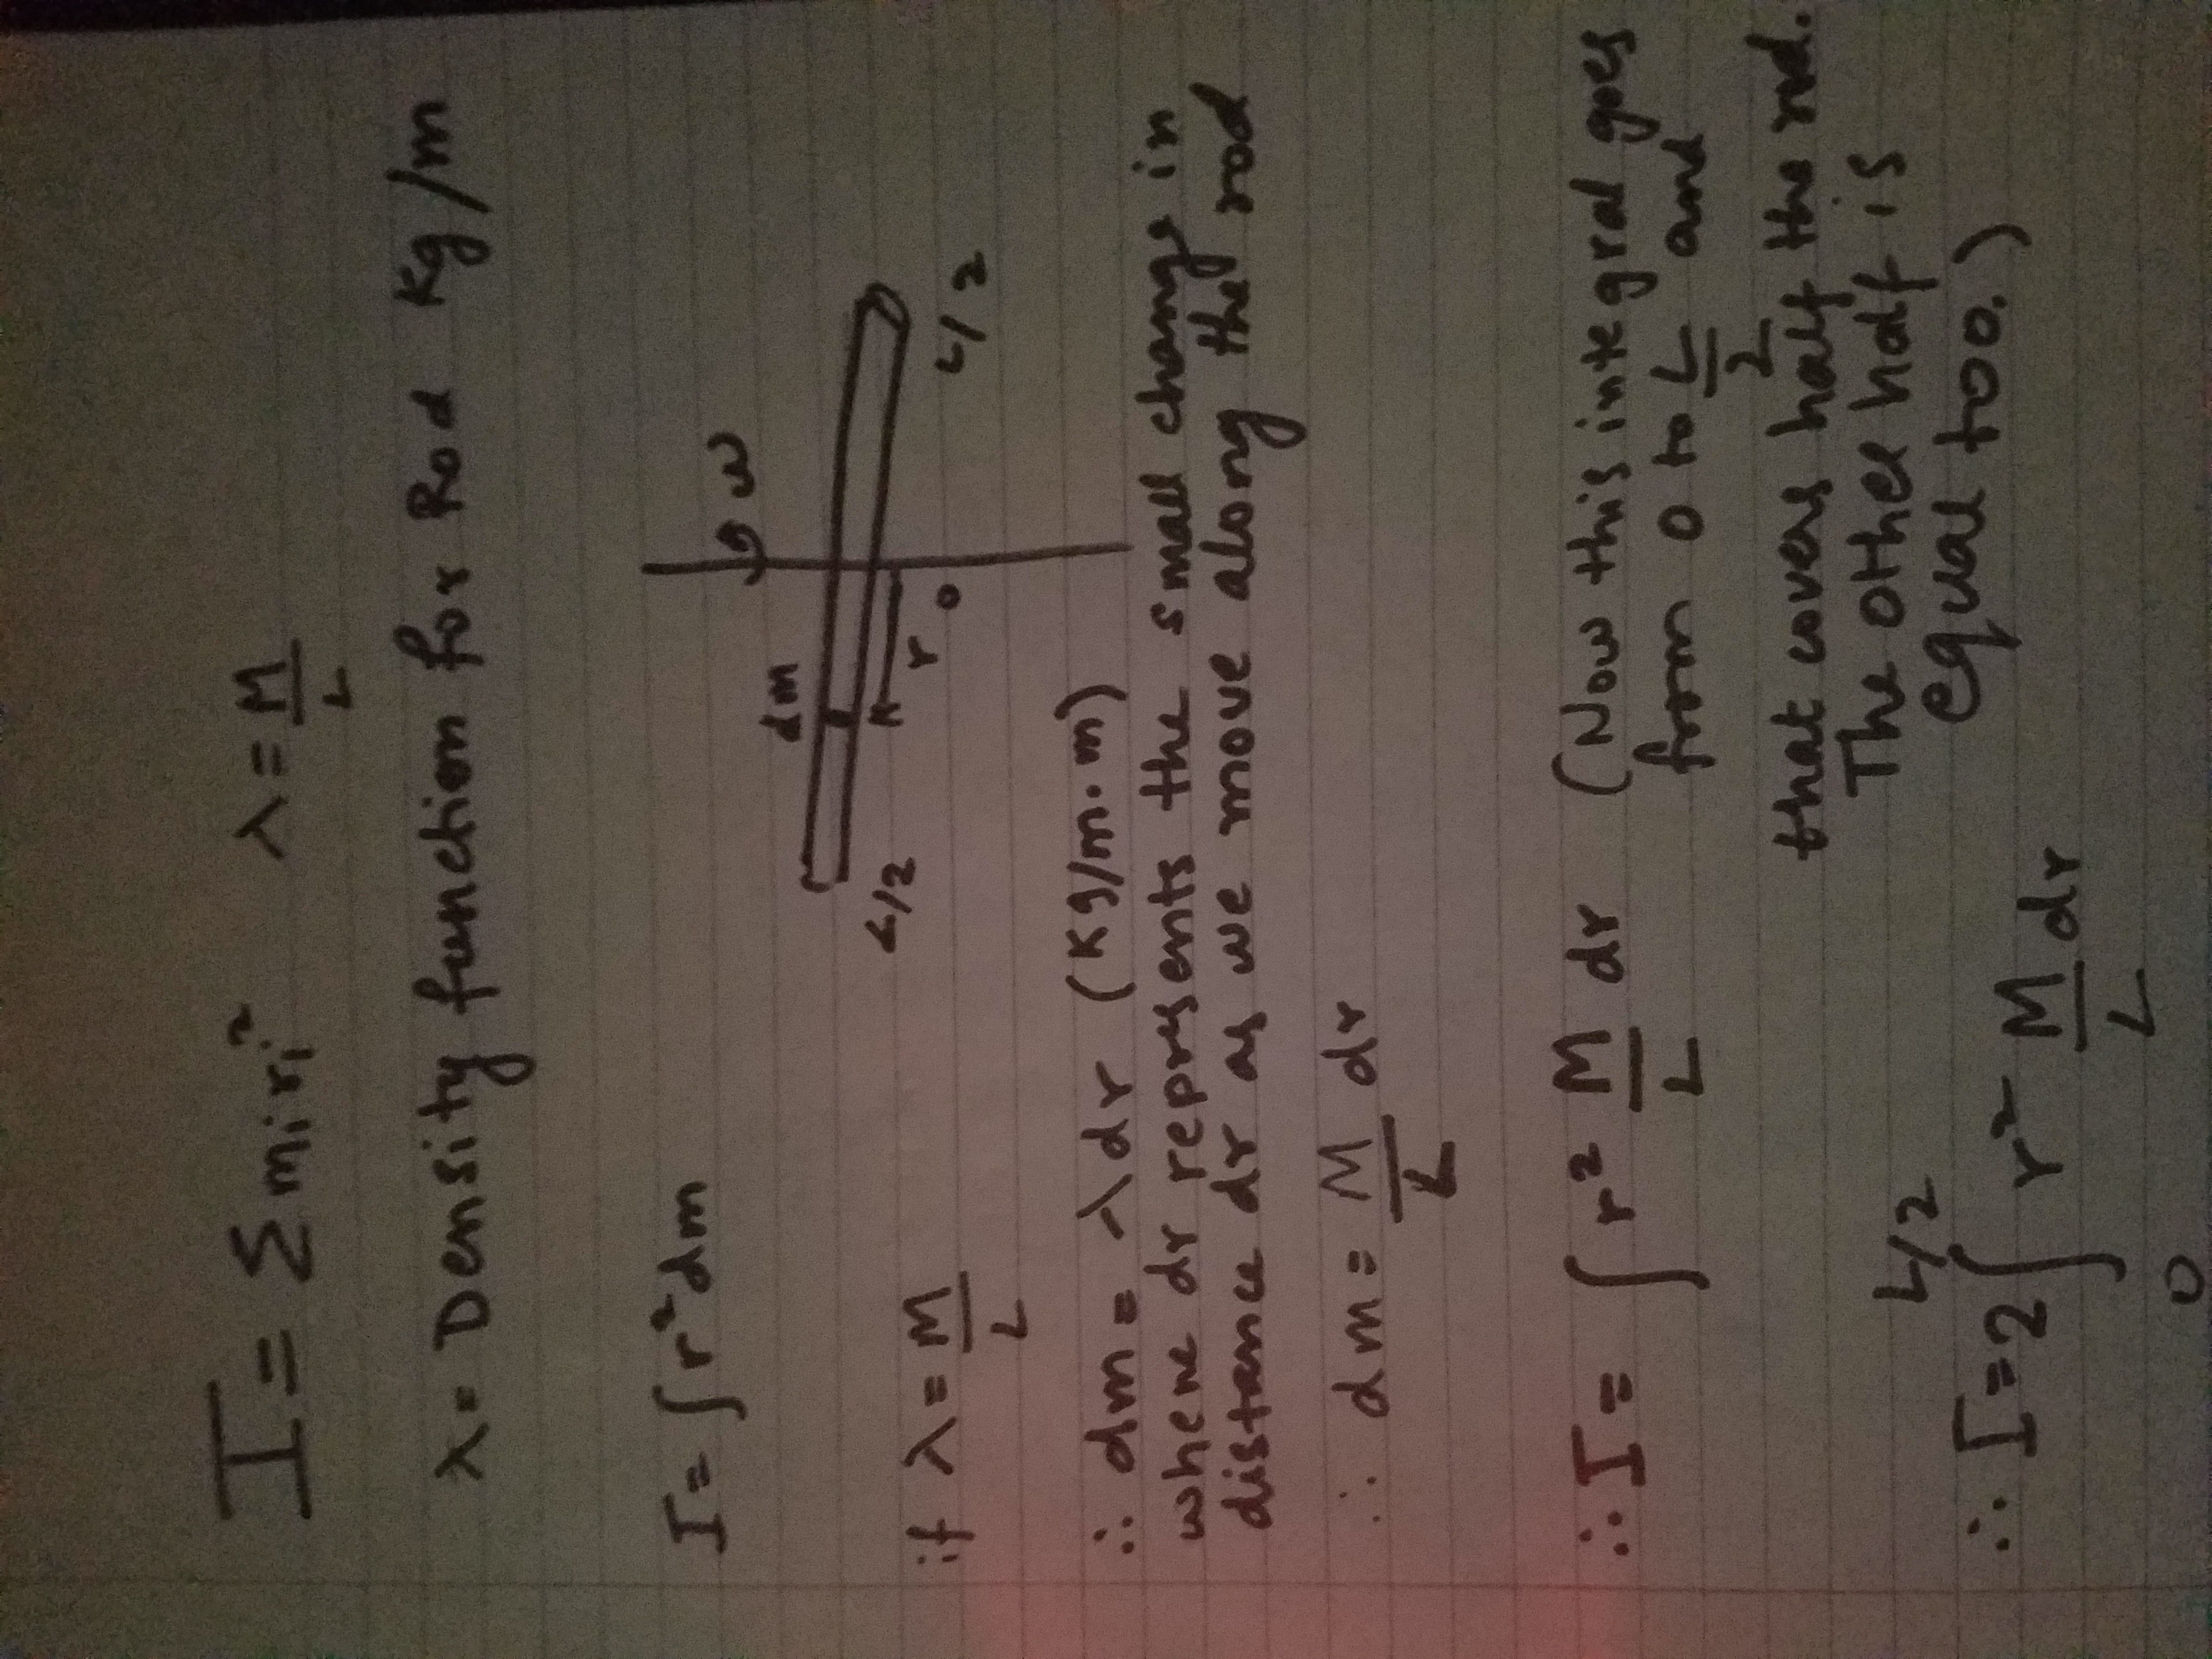 I = Σ miri²   λ = M/L
λ = Density function for Rod Kg/m
I = ∫ r² dm
ω
dm
r
0
L/2
L/2
if λ = M/L
∴ dm = λ dr (Kg/m . m)
where dr represents the small change in
distance dr as we move along the rod
∴ dm = M/L dr
∴ I = ∫ r² M/L dr (Now this integral goes
from 0 to L/2 and
that covers half the rod.
The other half is
equal too.)
∴ I = 2 ∫₀^{L/2} r² M/L dr